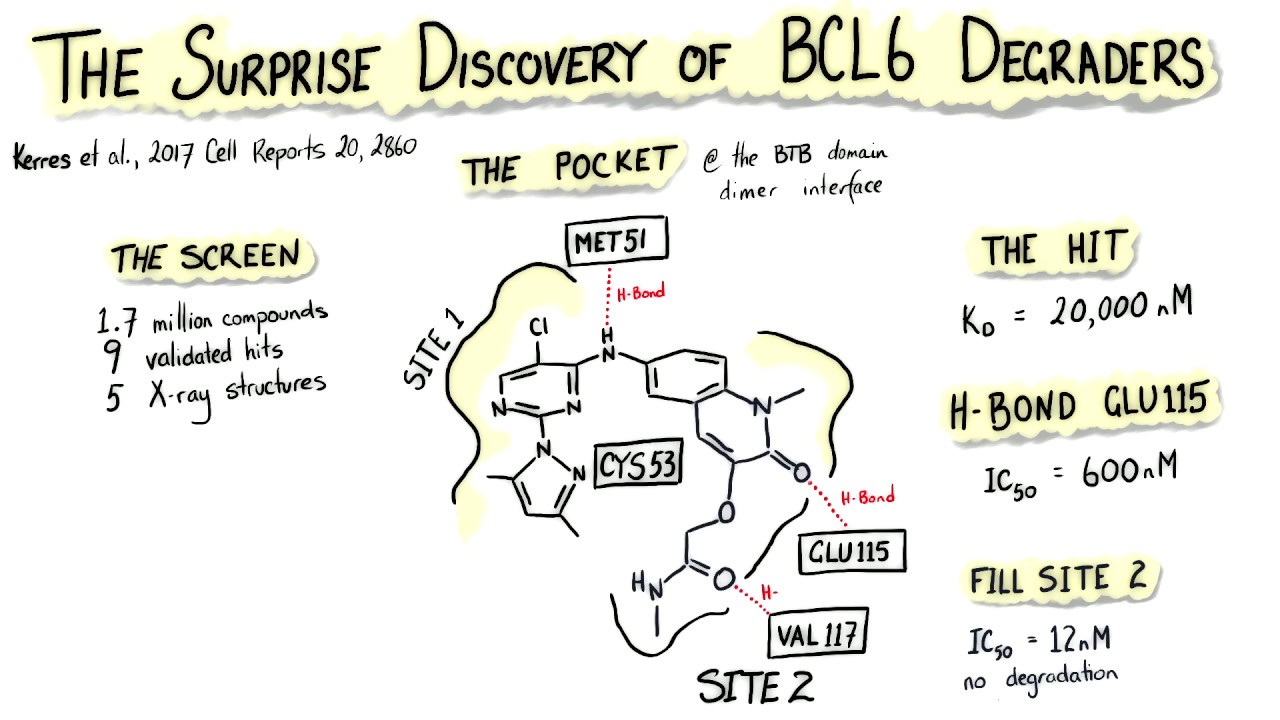 THE SURPRISE DISCOVERY OF BCL6 DEGRADERS
Kerres et al., 2017 Cell Reports 20, 2860
THE POCKET
@ the BTB domain
dimer interface
THE SCREEN
1.7 million compounds
9 validated hits
5 X-ray structures
SITE 1
MET51
H-Bond
Cl
H
N
N
N
N
N
N
O
O
O
H
N
CYS53
H-Bond
GLU115
H-
VAL117
SITE 2
THE HIT
KD = 20,000 nM
H-BOND GLU115
IC50 = 600nM
FILL SITE 2
IC50 = 12nM
no degradation